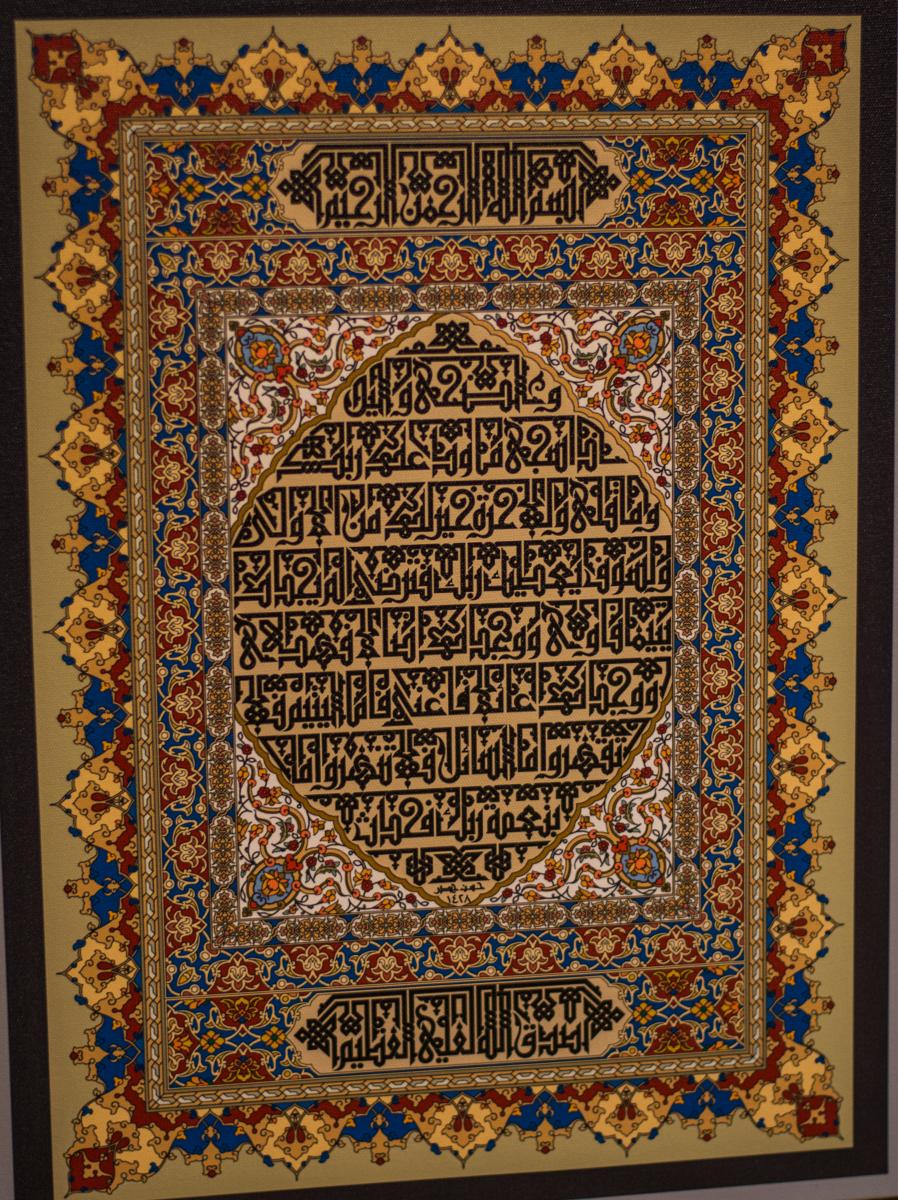 بسم الله الرحمن الرحيم
والضحى واليل
إذا سجى ما ودعك ربك
وما قلى وللآخرة خير لك من الأولى
ولسوف يعطيك ربك فترضى ألم يجدك
يتيما فآوى ووجدك ضالا فهدى
ووجدك عائلا فأغنى فأما اليتيم فلا
تقهر وأما السائل فلا تنهر وأما
بنعمة ربك فحدث
١٤٢٨
صدق الله العلي العظيم